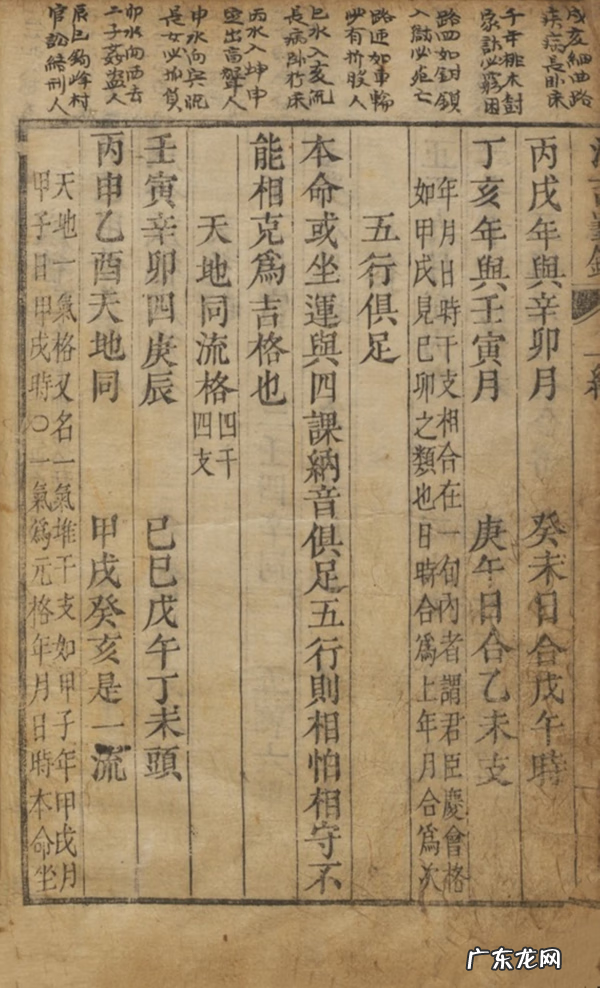 戌亥細曲路
疾病長卧床
千年桃木封
家訟必窮困
路四如鈄鎖
入獄必死亡
路連如車輪
必有折股人
巳水入亥流
長病卧竹床
丙水入坤申
亦出盲聾人
申水向與沉
長女必抱負
卯水向西去
二子姦盗人
辰巳鈎峰村
官訟結刑人
丙戌年與辛卯月 癸未日合戊午時
丁亥年與壬寅月 庚午日合乙未支
年月日時干支相合在一旬內者謂君臣慶會格
如甲戌見巳卯之類也日時合爲上年月合爲次
五行俱足
本命或坐運與四課納音俱足五行則相怕相守不
能相克爲吉格也
天地同流格
四干
四支
壬寅辛卯四庚辰 己巳戊午丁未頭
丙申乙酉天地同 甲戌癸亥是一流
天地一氣格又名一氣堆干支如甲子年甲戌月
甲子日甲戌時○一氣爲元格年月日時本命坐
广东龙网